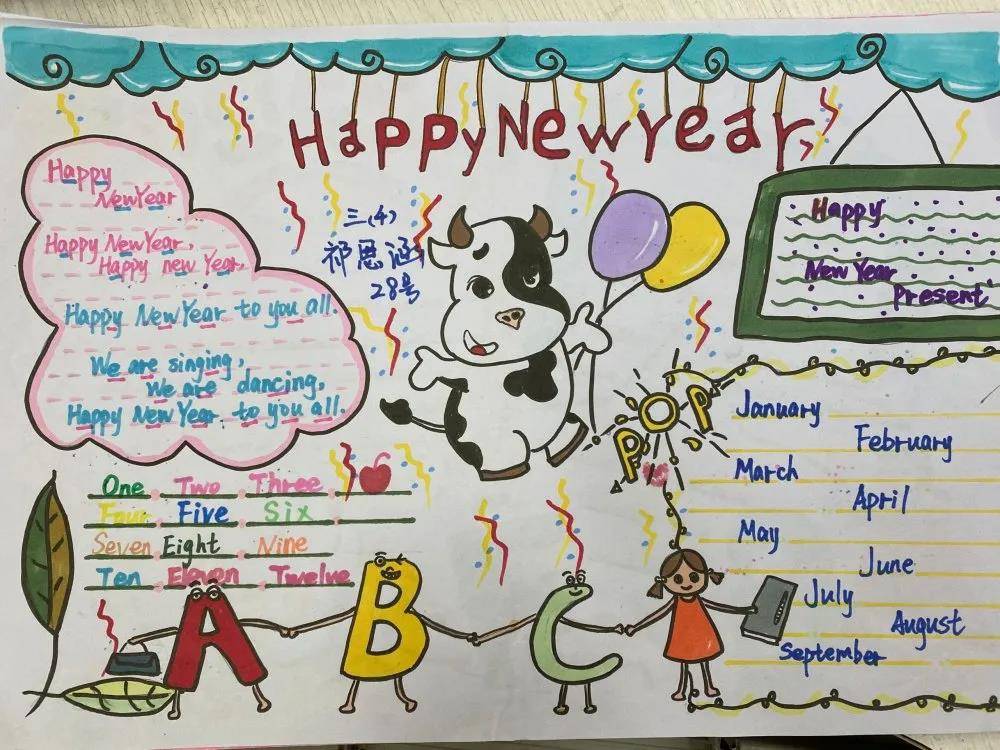 Happy New Year
三(4)
祁恩涵
28号
Happy
New Year
Happy New Year,
Happy new Year,
Happy New Year to you all.
We are singing,
We are dancing,
Happy New Year to you all.
Happy
New Year
Present
One Two Three
Four Five Six
Seven Eight Nine
Ten Eleven Twelve
POP
January
February
March
April
May
June
July
August
September
A B C